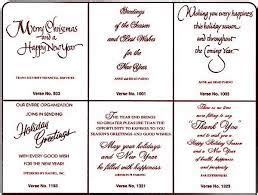 Merry Christmas
and a
Happy New Year
Verse No. 803
Greetings
of the Season
and Best Wishes
for the
New Year
Verse No. 1001
Wishing you every happiness
this holiday season
and throughout
the
Coming Year
ANNE and BRAD
Verse No. 1003
OUR ENTIRE ORGANIZATION
JOINS IN SENDING
Holiday
Greetings
WITH EVERY GOOD WISH
FOR THE NEW YEAR
Verse No. 1193
THE YEAR END BRINGS
NO GREATER PLEASURE THAN THE
OPPORTUNITY TO EXPRESS TO YOU
SEASON'S GREETINGS AND GOOD WISHES
May your holidays
and New Year
be filled with
joy and happiness
Verse No. 1321
to say
"Thank You"
and to wish you
a Happy Holiday Season
and a New Year
of Health, Happiness
and Success
Verse No. 1323